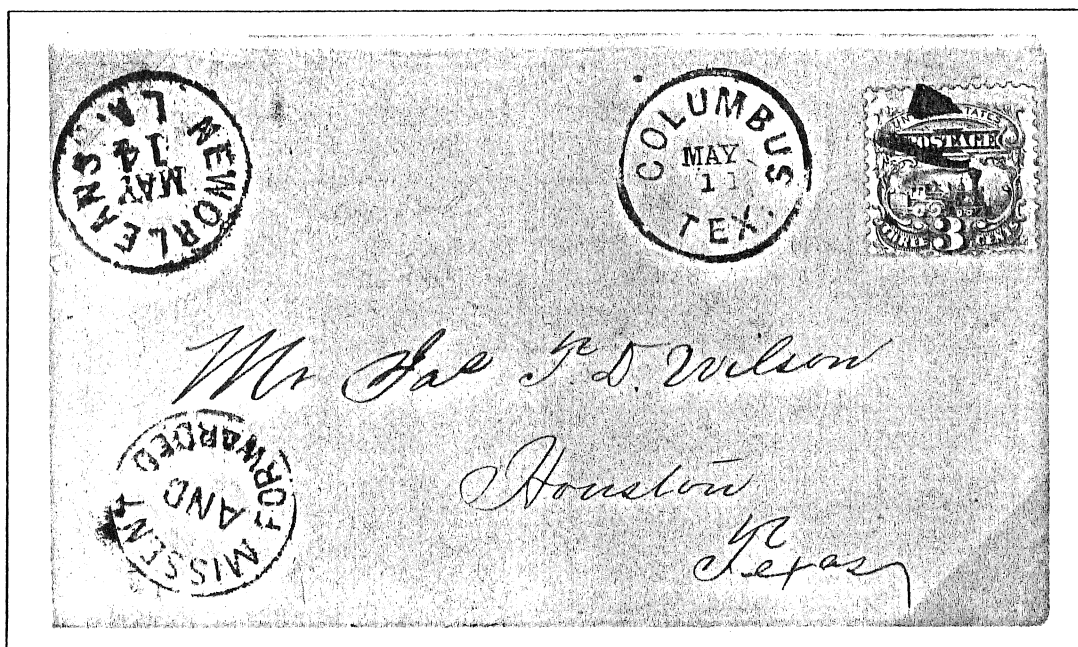 NEW ORLEANS LA.
MAY
14
COLUMBUS TEX.
MAY
11
UNITED STATES
POSTAGE
THREE 3 CENTS
Mr Jas T. D. Wilson
Houston
Texas
MISSENT AND FORWARDED